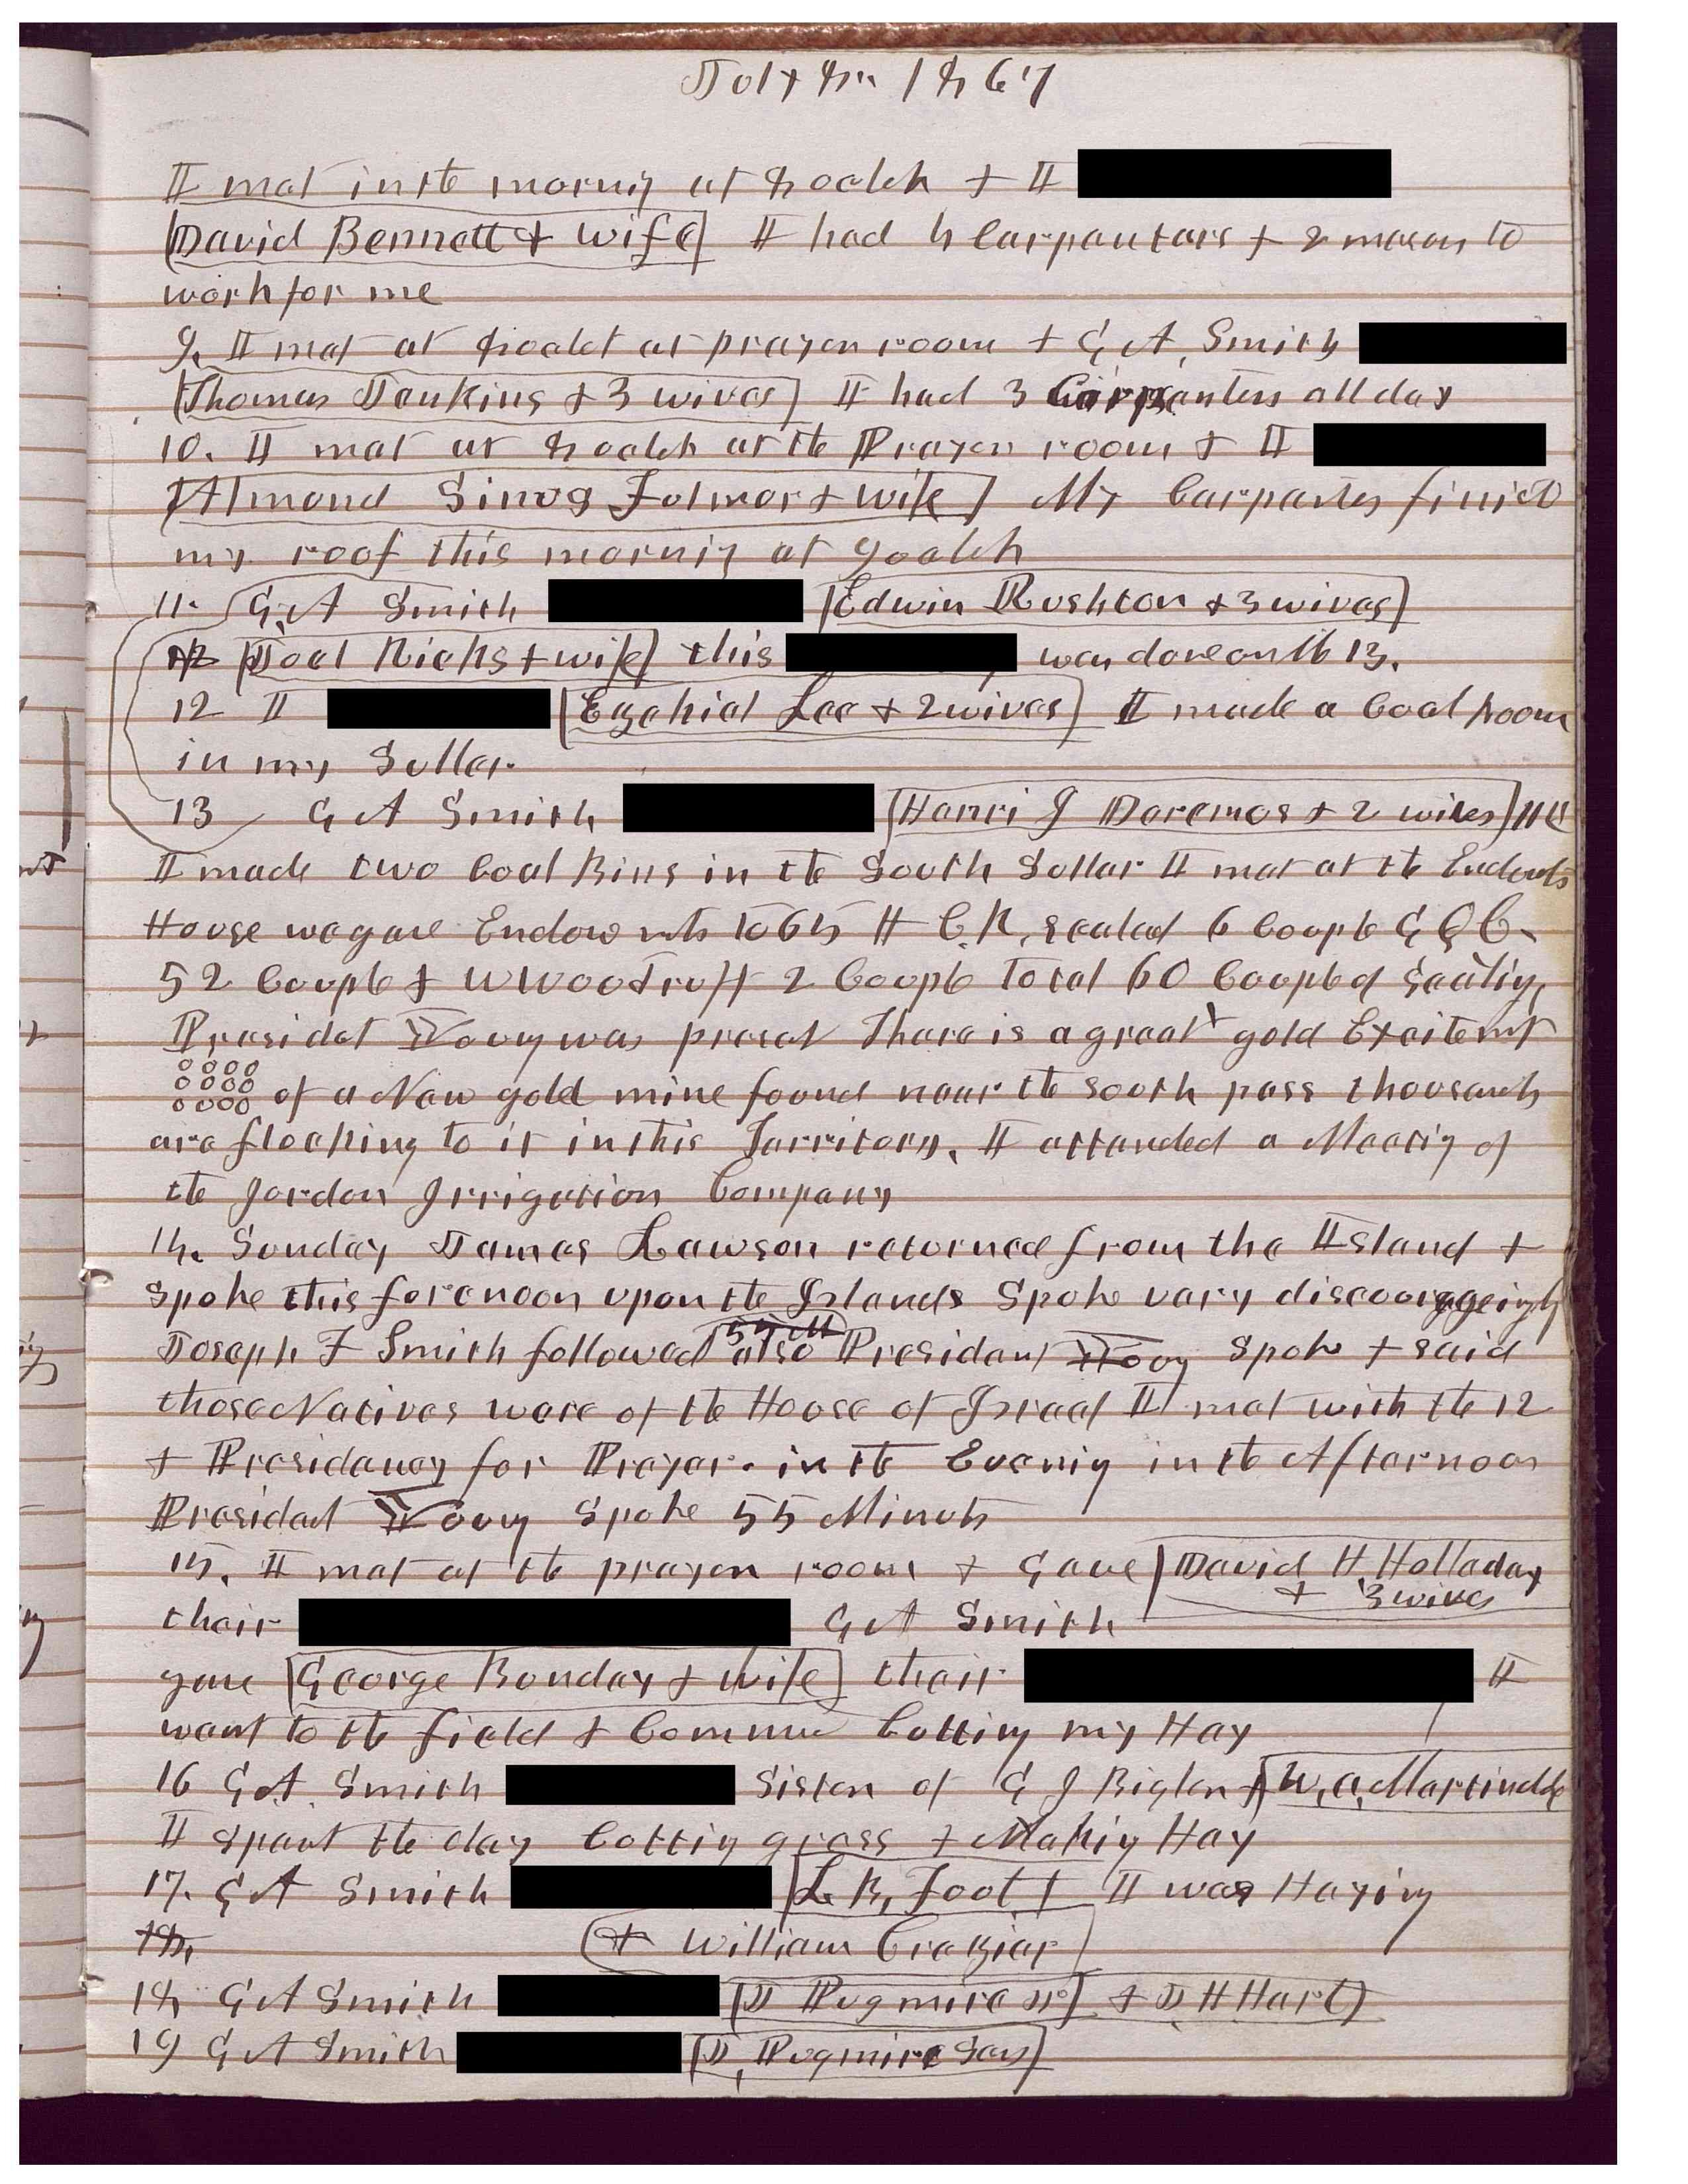 July 8th 1867
I met in the morning at 8 oclok & I
David Bennett & wife I had 4 Carpenters & 2 masons to
work for me
9. I met at 8 oclok at prayer room & G A. Smith
Thomas Jenkins & 3 wives I had 3 Carpenters all day
10. I met at 8 oclok at the Prayer room & I
Almond Sinus Fulmer & wife My Carpenters finist
my roof this mornig at 9 oclok
11. G. A Smith Edwin Rushton & 3 wives
12 Joel Ricks & wife this was done on the 13.
12 I Ezekiel Lee & 2 wives I made a Coal Room
in my Sellar
13 G A Smith Henri J Doremus & 2 wives
I made two Coal Bins in the South Sellar I met at the Endowts
House we gave Endowmts to 65 H C.K. sealed 6 Couple G Q C.
52 Couple & W Woodruff 2 Couple Total 60 Coupled Sealig,
Presidet Young was preset There is a great gold Excitemt
of a New gold mine found near the South pass thousands
are flocking to it in this Territory. I attended a Meetig of
the Jordon Irrigation Company
14. Sunday James Lawson returned from the Island &
spoke this forenoon upon the Islands Spoke very discouraggeigly
Joseph F Smith followed 55 M also President Young Spoke & said
those Natives were of the House of Israel I met with the 12
& Presidency for Prayer. in the Evenig in the Afternoon
Presidet Young Spoke 55 Minuts
15. I met at the prayer room & Gave David H. Holladay
& 3 wives
their G A Smith
gave George Bonday & wife their I
went to the field & Commed Cuttig my Hay
16 G A. Smith Sister of G J Bigler & W. A. Martindale
I spent the day Cottig grass & Makig Hay
17. G A Smith L. B, Foot & I was Hayig
18.
& William Craziar
18 G A Smith J Pugmire Sr & J H Hart
19 G A Smith J, Pugmire Sen